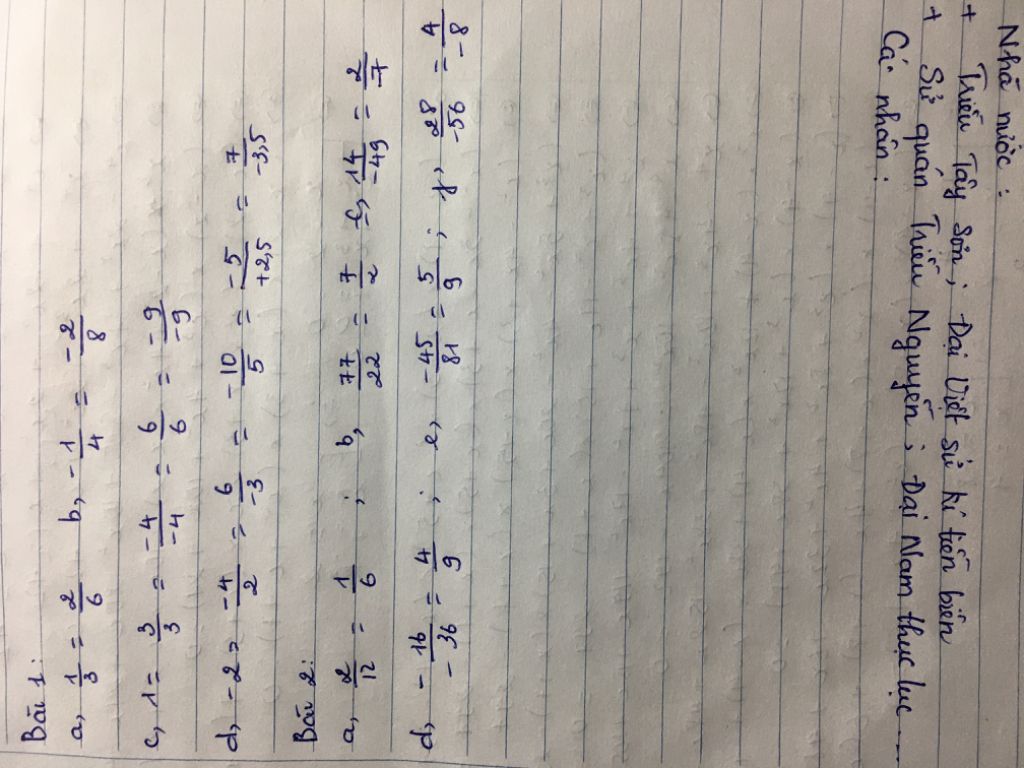 Bài 1:
a, 1/3 = 2/6 b, -1/4 = -2/8
c, 1 = 3/3 = -4/-4 = 6/6 = -9/-9
d, -2 = -4/2 = 6/-3 = -10/5 = -5/+2,5 = 7/-3,5
Bài 2:
a, 2/12 = 1/6 ; b, 77/22 = 7/2 c, 14/-49 = 2/-7
d, -16/-36 = 4/9 ; e, -45/81 = 5/9 ; f, 28/-56 = 4/-8
Nhà nước :
+ Triều Tây Sơn ; Đại Việt sử kí tiền biên
+ Sử quán Triều Nguyễn ; Đại Nam thực lục ...
Cá nhân :